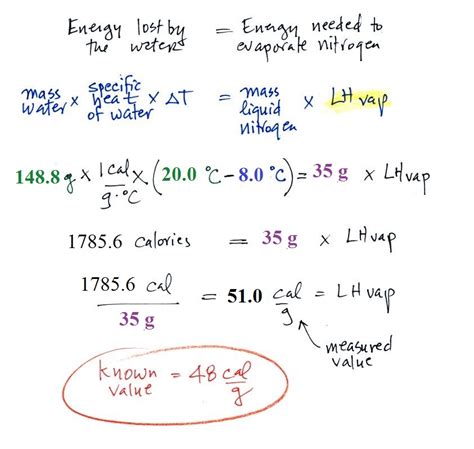 Energy lost by = Energy needed to
the water evaporate nitrogen
mass water x specific heat of water x ΔT = mass liquid nitrogen x LH vap
148.8 g x 1 cal/g·°C x (20.0 °C - 8.0 °C) = 35 g x LHvap
1785.6 calories = 35 g x LHvap
1785.6 cal / 35 g = 51.0 cal/g = LHvap
measured
value
known value = 48 cal/g